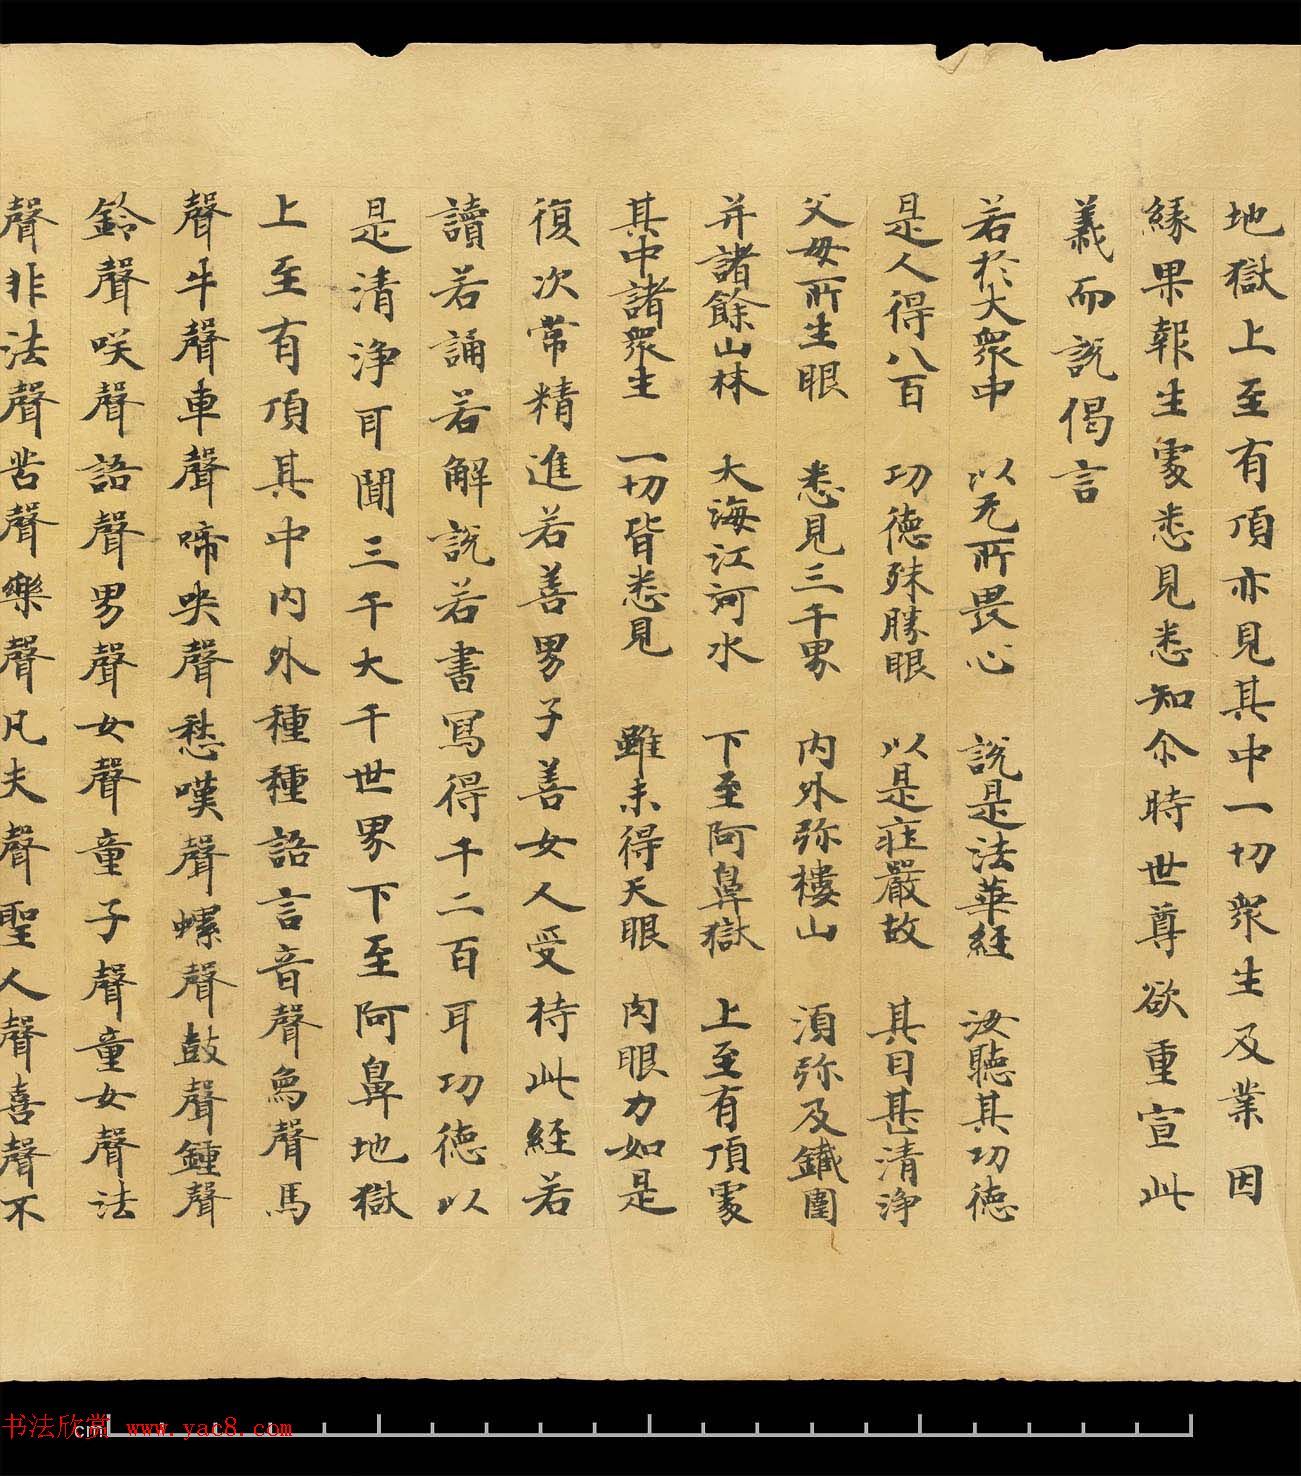 地獄上至有頂亦見其中一切衆生及業因
緣果報生處悉見悉知尒時世尊欲重宣此
義而說偈言
若於大衆中 以无所畏心 說是法華經 汝聽其功德
是人得八百 功德殊勝眼 以是莊嚴故 其目甚清淨
父母所生眼 悉見三千界 內外弥樓山 湏弥及鐵圍
并諸餘山林 大海江河水 下至阿鼻獄 上至有頂處
其中諸衆生 一切皆悉見 雖未得天眼 肉眼力如是
復次常精進若善男子善女人受持此經若
讀若誦若解說若書寫得千二百耳功德以
是清淨耳聞三千大千世界下至阿鼻地獄
上至有頂其中內外種種語言音聲象聲馬
聲牛聲車聲啼哭聲愁嘆聲螺聲鼓聲鍾聲
鈴聲咲聲語聲男聲女聲童子聲童女聲法
聲非法聲苦聲樂聲凡夫聲聖人聲喜聲不
书法欣赏 www.yac8.com
cm